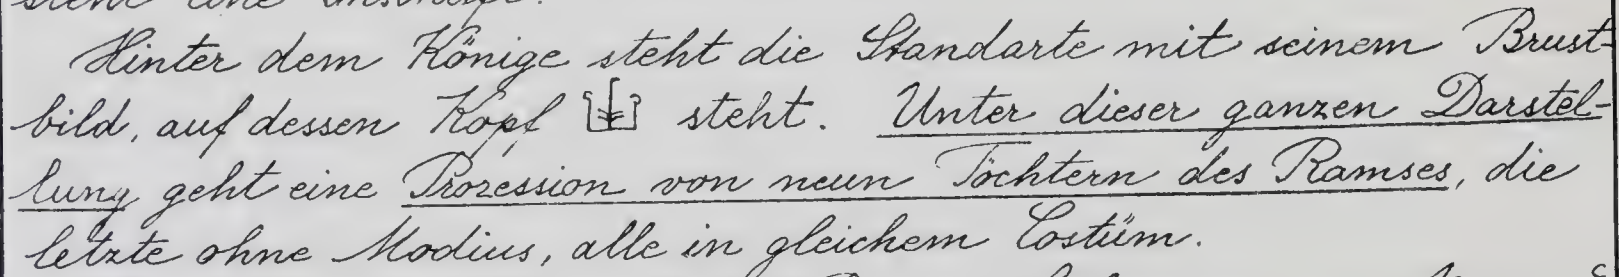 steht eine Inschrift.
Hinter dem Könige steht die Standarte mit seinem Brust-
bild, auf dessen Kopf steht. Unter dieser ganzen Darstel-
lung geht eine Prozession von neun Töchtern des Ramses, die
letzte ohne Modius, alle in gleichem Costüm.